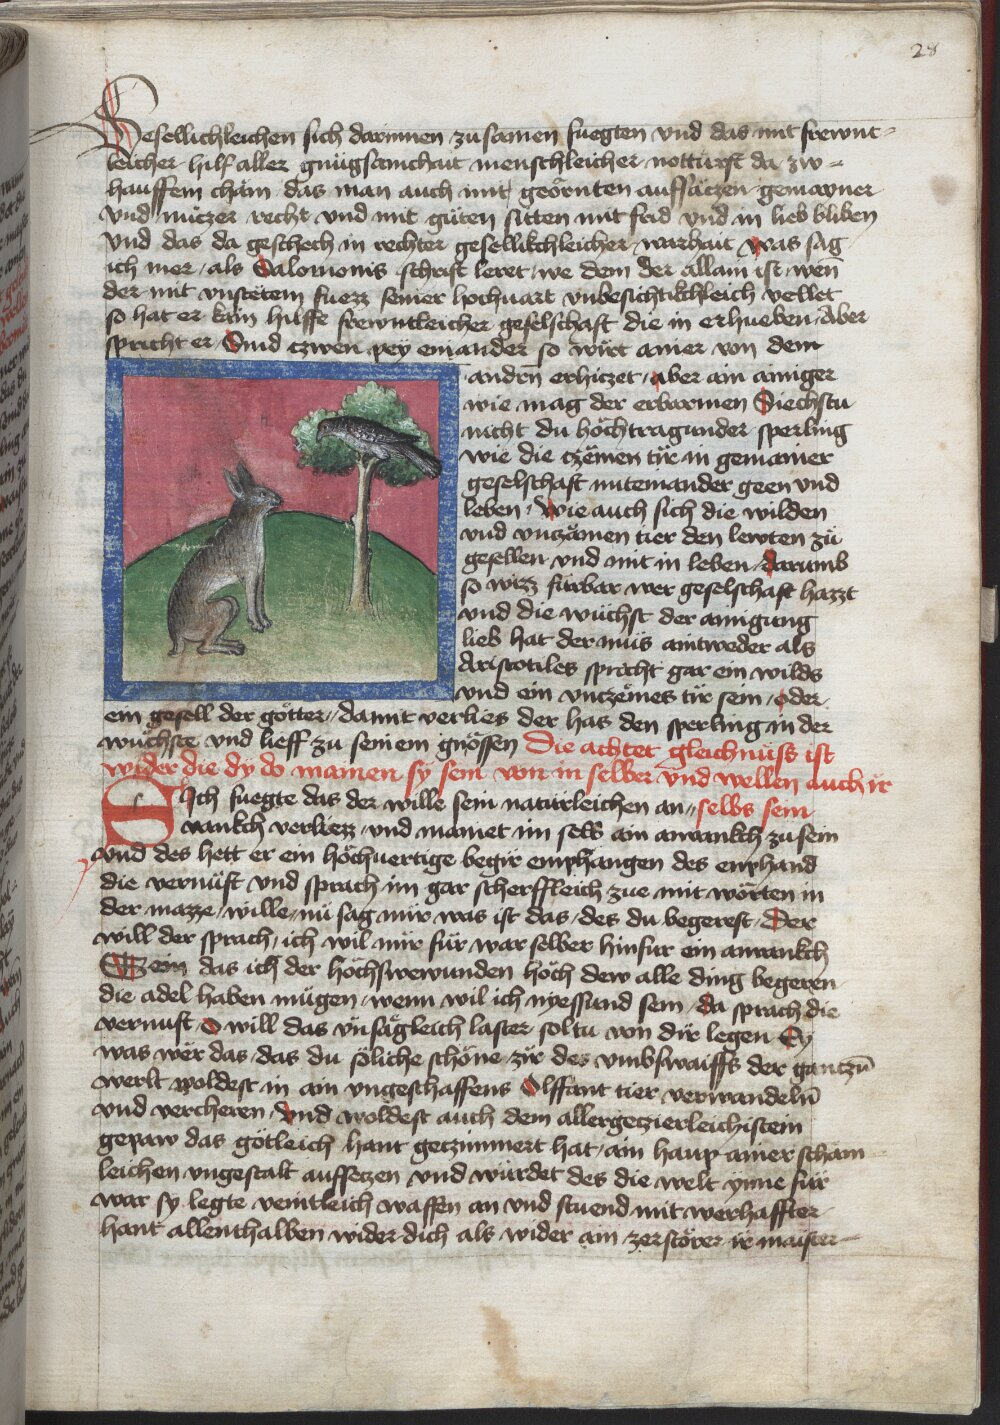 28
Gesellichleichen sich darinnen zusamen fuegten vnd das mit frewnt-
leicher hilf aller gnuͤgsamchait menschleicher notturft da zw-
hauffem chäm das man auch mit geörnten auffsäczen gemayner
vnd nüczer recht vnd mit güten sitten mit frid vnd in lieb bliben
vnd das da geschech in rechter gesellikchleicher warhait was sag
ich mer als Salomonis schrift leret we dem der allain ist wen̄
der mit vnstëtem fuezz seiner hochuart vnbesichtikchleich vellet
so hat er kain hilffe frewntleicher geselschaft die in erhueben Aber
spricht er Sind czwen pey einander so wirt ainer von dem
andrn̄ erhiczet aber ain ainiger
wie mag der erbarmen Siechstu
nicht du höchtragunder sperling
wie die czëmen tür in gemainer
geselschaft miteinander geen vnd
leben Wie auch sich die wilden
vnd vnczämen tier den lewten zü
gesellen vnd mit in leben darumb
so wizz fürbar wer geselschaft hazzt
vnd die wüchst der ainigung
lieb hat der müs aintweder als
Aristotiles spricht gar ein wilds
vnd ein vnczëmes tir sein oder
ein gesell der götter damit verlies der has den sperling in der
wüchste vnd lieff zu seinem gnössen Die achtet gleichnuss ist
wider die dy do mainen sy sein von in selber vnd wellen auch ir
Sich fuegte das der wille sein natürleichen an- selbs sein
vankch verliezz vnd mainet im selb ain anvankch zu sein
vnd des hett er ein höchuertige begir emphangen des enphand
die vernüft vnd sprach im gar scherffleich zue mit wörten in
der mazze wille nü sag mir was ist das des du begerest Der
will der sprach ich wil mir für war selber hinfur ein anuankch
Sein das ich der höchswewunden höch dew alle ding begeren
die adel haben mügen wenn wil ich nyessund sein da sprach die
vernuft O will das vnsägleich laster soltu von dir legen Ey
was wër das das du söliche schöne zir des vmbswaiffs der gantzn̄
werlt woldest in ain vngeschaffens Olffant tier verwandeln̄
vnd vercheren vnd woldest auch dem allergeczierleichistem
gepaw das götleich hant geczimmert hat ain haup ainer schäm
leichen vngestalt auffseczen vnd würdet des die welt ynne für
war sy legte veintleich waffen an vnd stuend mit werhaffter
hant allenthalben wider dich als wider ain zerstörer ir maister